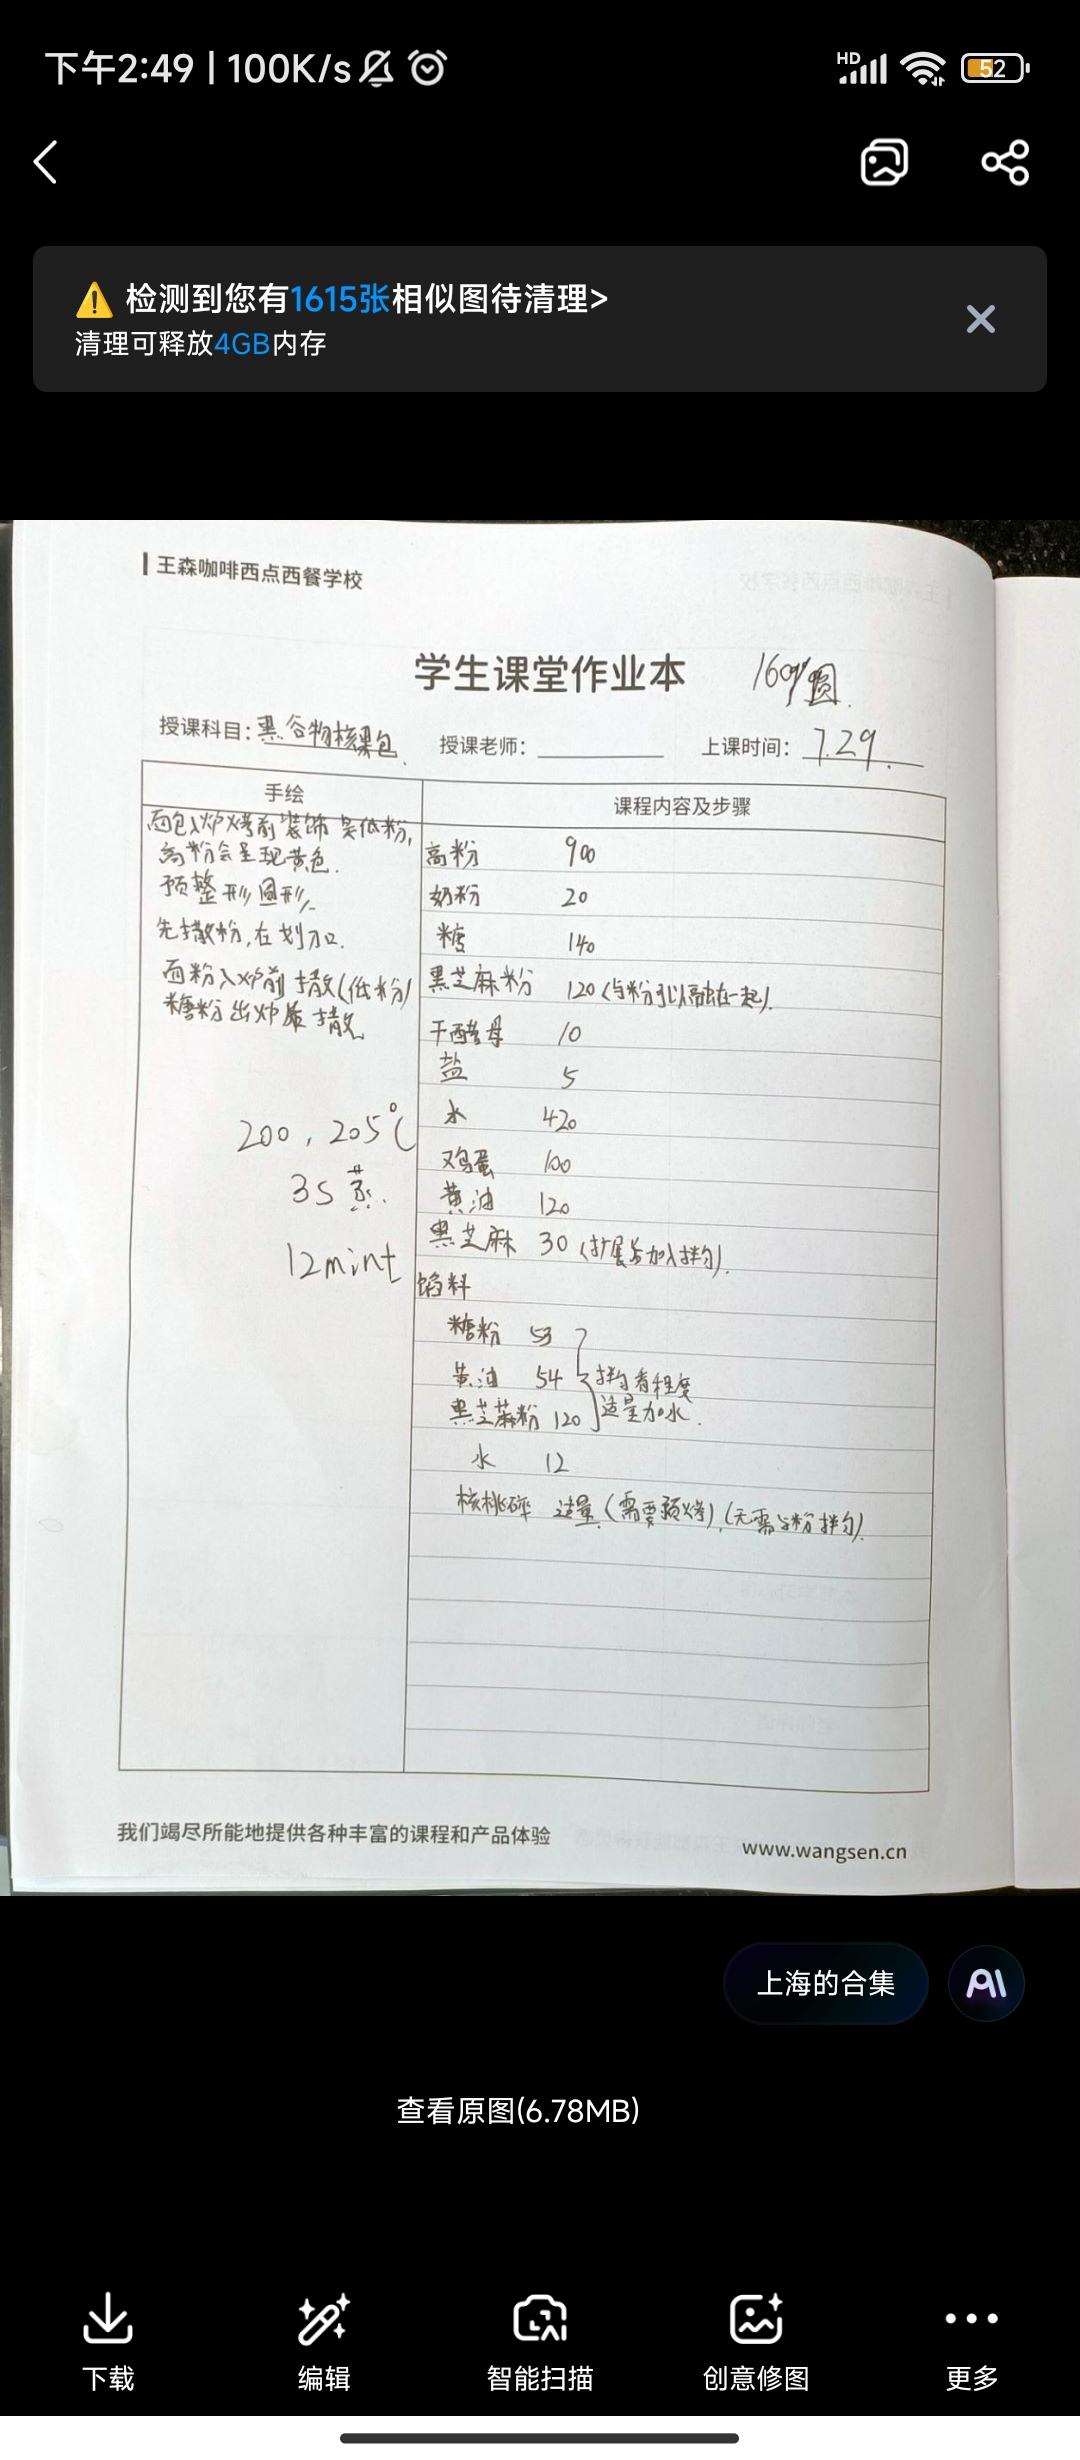 下午2:49 | 100K/s
HD
52
检测到您有1615张相似图待清理>
清理可释放4GB内存
王森咖啡西点西餐学校
学生课堂作业本
160g/圆.
授课科目: 黑谷物核果包.
授课老师:
上课时间: 7.29.
手绘
课程内容及步骤
面包入炉烤前装饰 是低粉,
高粉会呈现黄色.
预整形圆形
先撒粉,在划刀口.
面粉入炉前撒(低粉)
糖粉出炉后撒
200, 205℃
3S 蒸.
12mint
高粉 900
奶粉 20
糖 140
黑芝麻粉 120 (与粉可以融在一起).
干酵母 10
盐 5
水 420
鸡蛋 100
黄油 120
黑芝麻 30 (扩展后加入拌匀).
馅料
糖粉 53
黄油 54 拌匀看程度
黑芝麻粉 120 适量加水.
水 12
核桃碎 适量.(需要预烤).(无需与粉拌匀).
我们竭尽所能地提供各种丰富的课程和产品体验
www.wangsen.cn
上海的合集
AI
查看原图(6.78MB)
下载
编辑
智能扫描
创意修图
更多